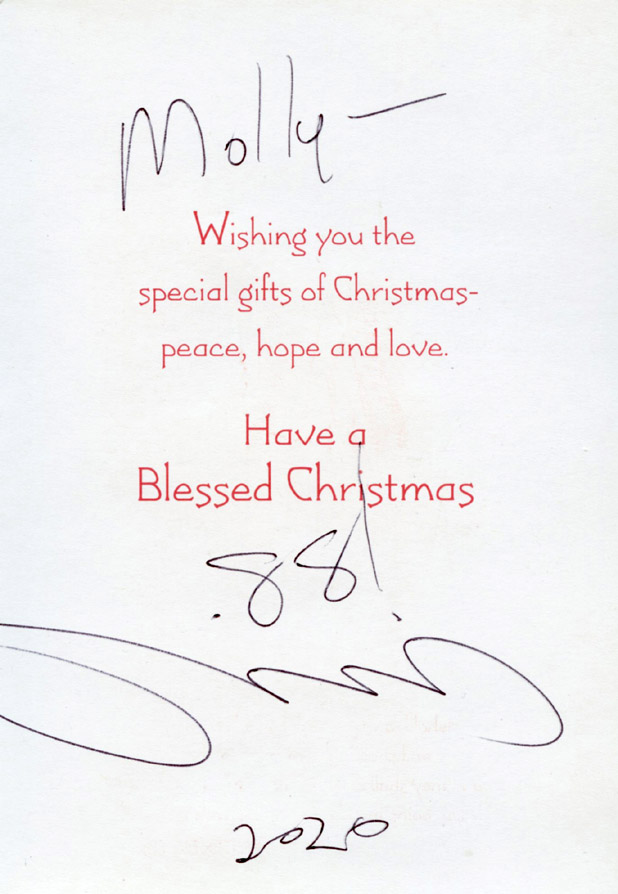 Molly —
Wishing you the
special gifts of Christmas-
peace, hope and love.
Have a
Blessed Christmas
.88!.
2020